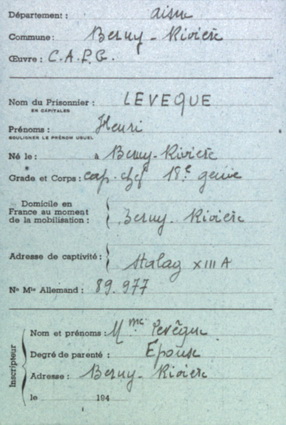 Département: aisne
Commune: Berny-Rivière
Œuvre: C.A.P.G.
Nom du Prisonnier: LEVEQUE
EN CAPITALES
Prénoms: Henri
SOULIGNER LE PRÉNOM USUEL
Né le: à Berny-Rivière
Grade et Corps: cap. chef 18e génie
Domicile en
France au moment
de la mobilisation: Berny-Rivière
Adresse de captivité: Stalag XIII A
No Mle Allemand: 89.977
Inscripteur
Nom et prénoms: Mme Levêque
Degré de parenté: Epouse
Adresse: Berny-Rivière
le 194